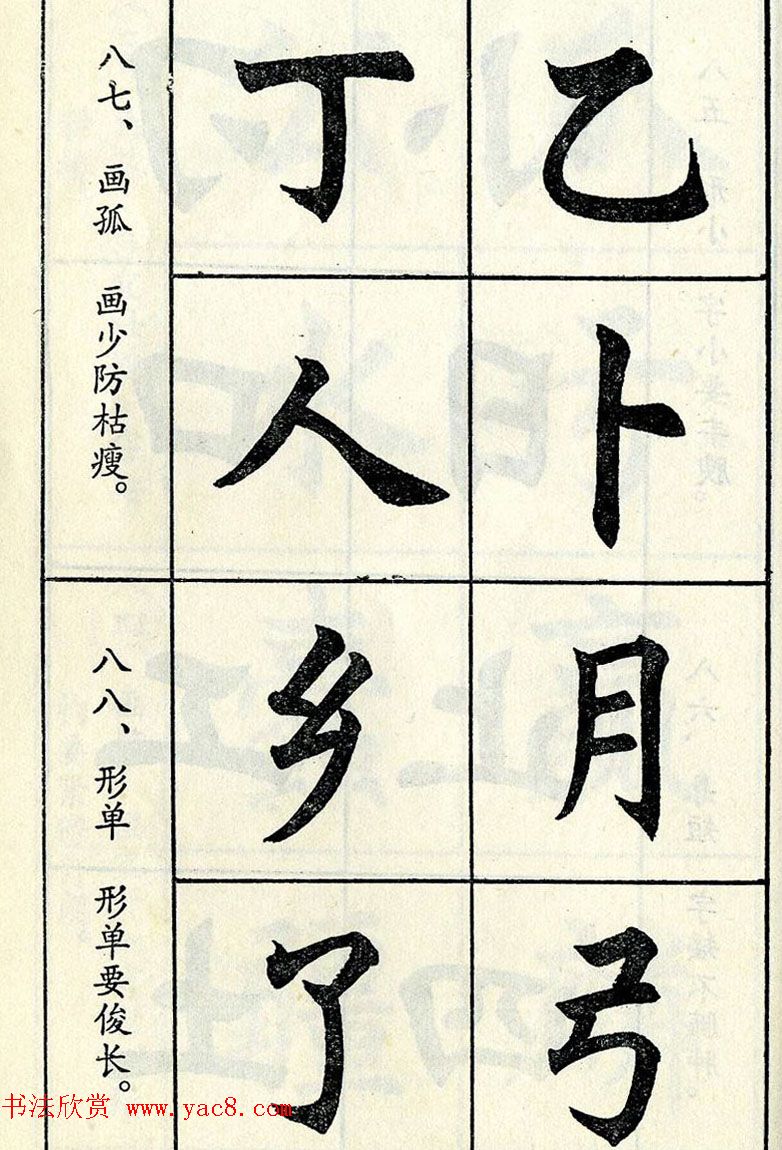 乙卜
丁人
八七、画孤 画少防枯瘦。
月弓
乡了
八八、形单 形单要俊长。
书法欣赏 www.yac8.com